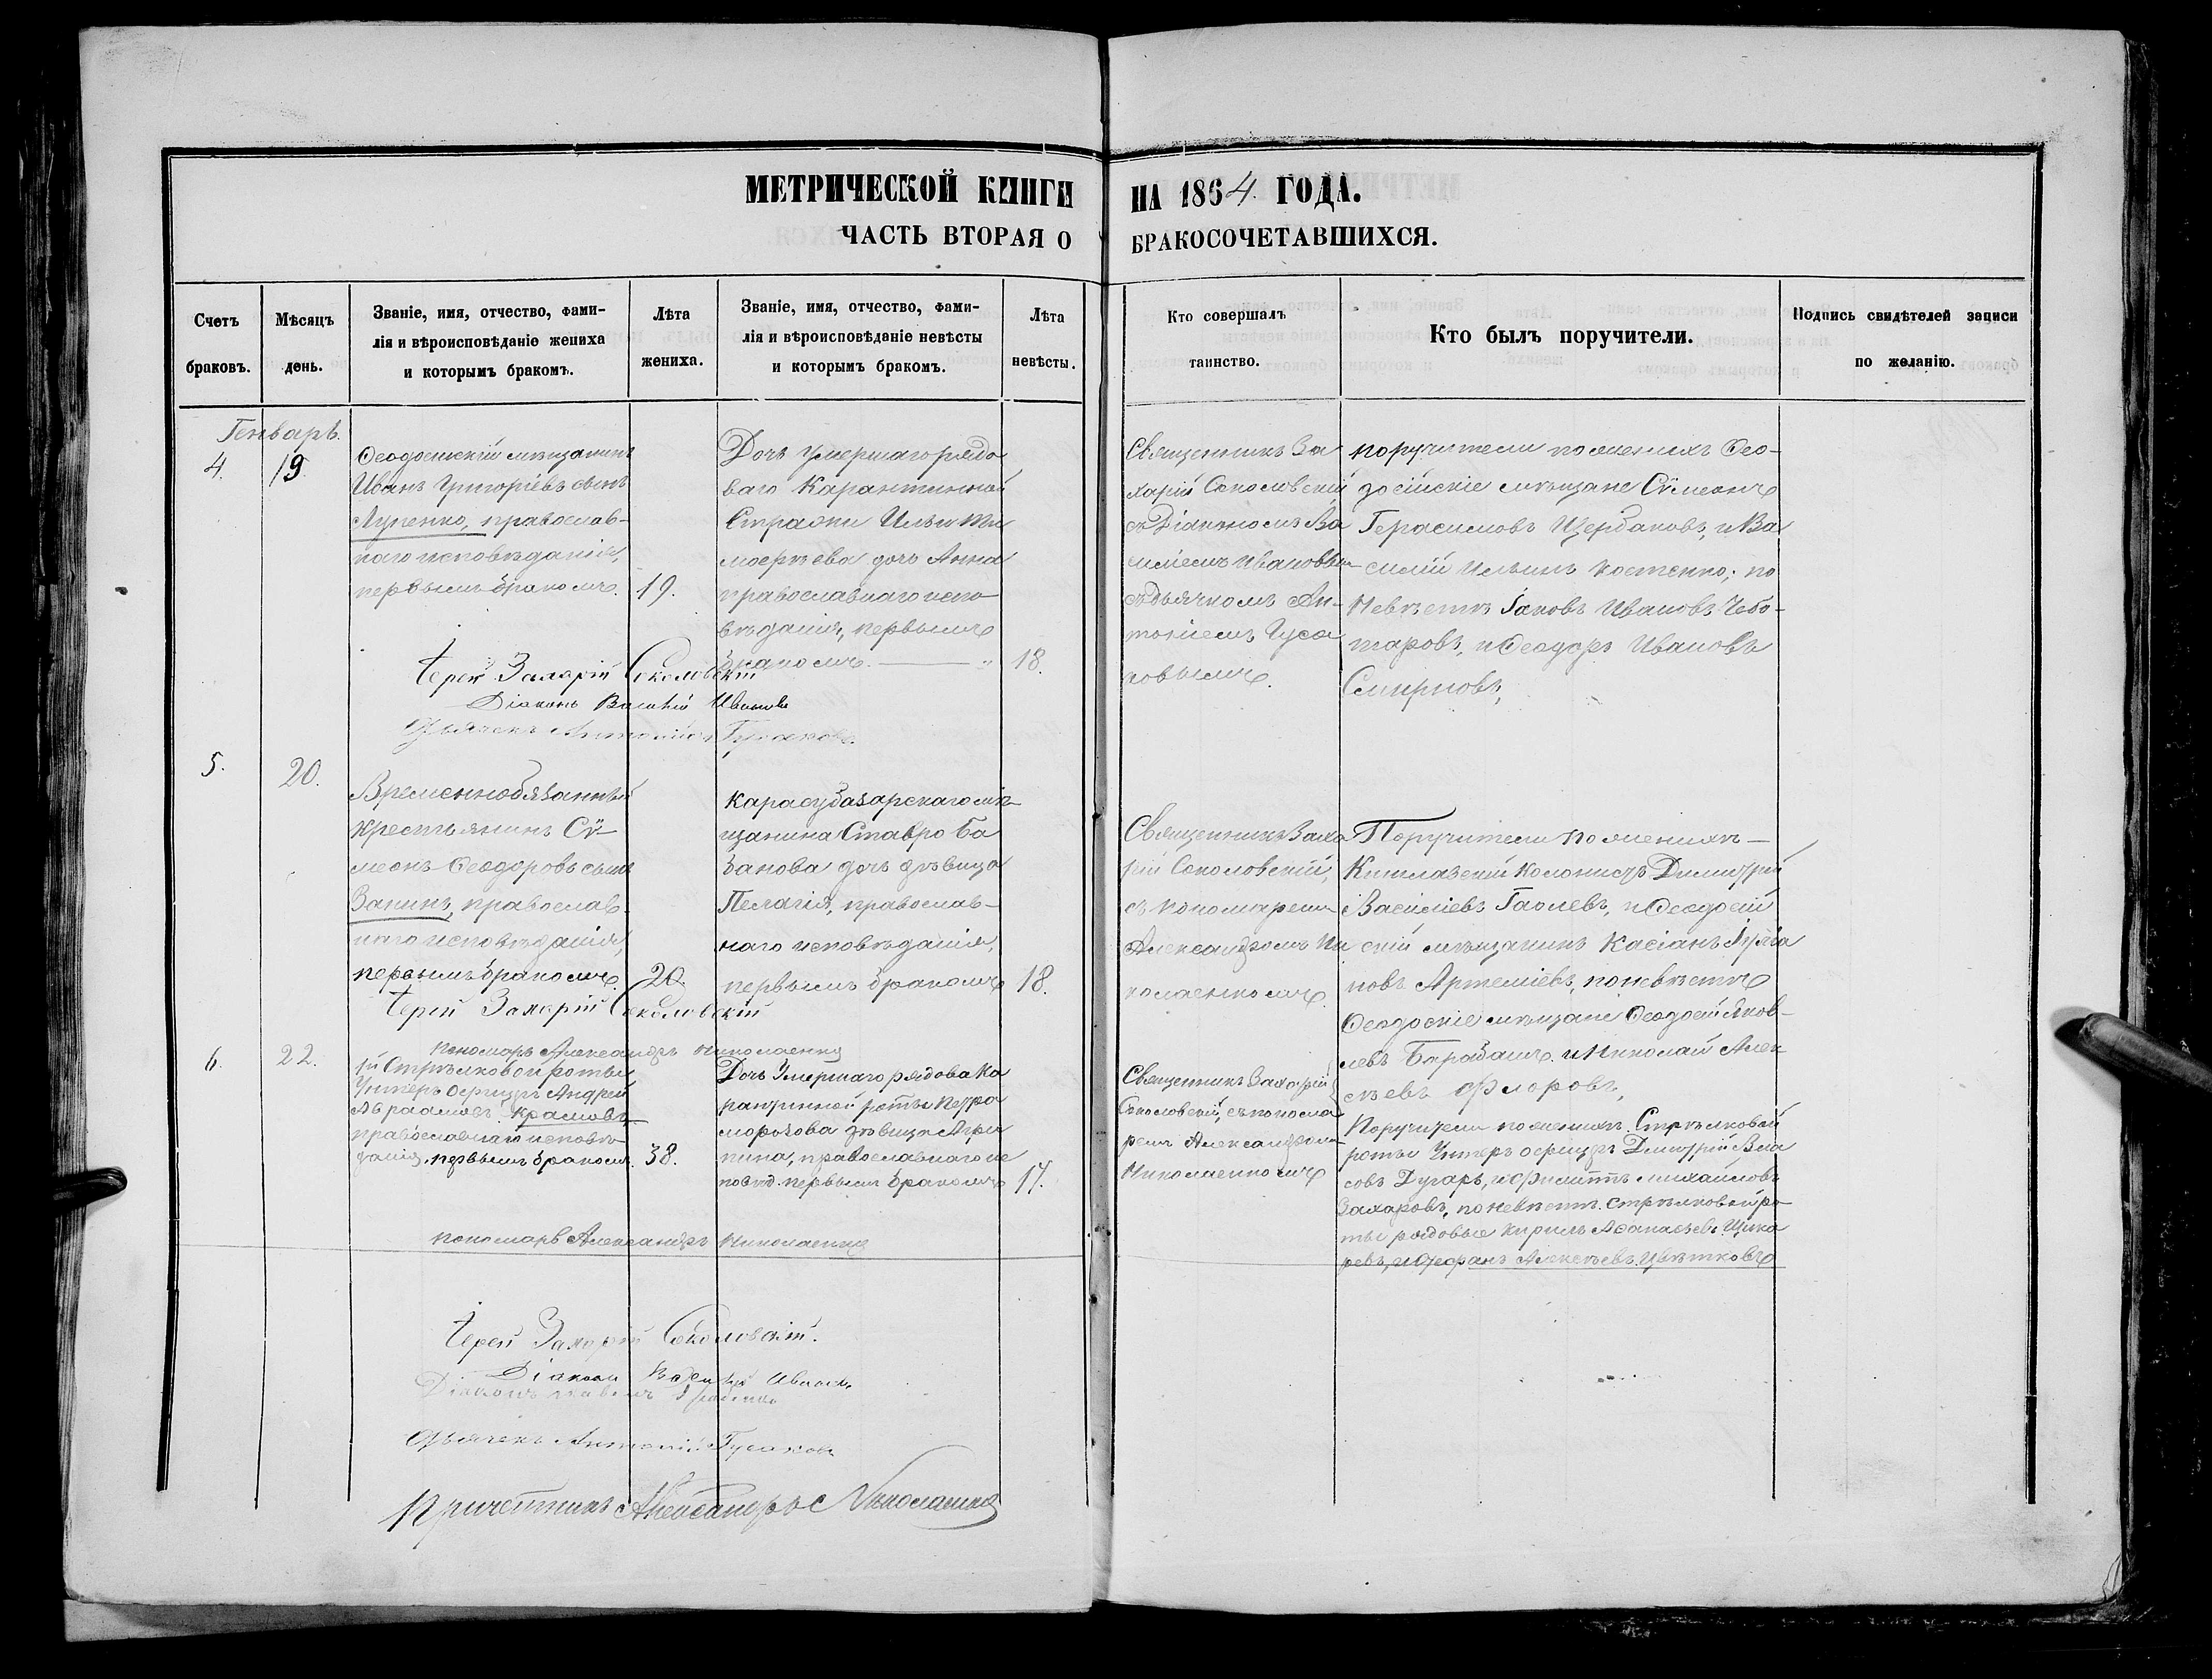 МЕТРИЧЕСКОЙ КНИГИ НА 1864 ГОДА.
ЧАСТЬ ВТОРАЯ О БРАКОСОЧЕТАВШИХСЯ.
Счетъ браковъ.
Мѣсяцъ день.
Званіе, имя, отчество, фами-
лія и вѣроисповѣданіе жениха
и которымъ бракомъ.
Лѣта
жениха.
Званіе, имя, отчество, фами-
лія и вѣроисповѣданіе невѣсты
и которымъ бракомъ.
Лѣта
невѣсты.
Кто совершалъ
таинство.
Кто былъ поручители.
Подпись свидѣтелей записи
по желанію.
Генварь.
4.
19.
Ѳеодосійскій мѣщанинъ
Иванъ Григоріевъ сынъ
Луценко, православ-
наго исповѣданія,
первымъ бракомъ.
19.
Дочь умершаго рядо
ваго Карантинной
Стражи Ильи Ти
моѳѣева дочь Анна
православнаго испо-
вѣданія, первымъ
бракомъ.
18.
Священникъ За
харій Соколовскій
съ Діакономъ Ва
силіемъ Ивановым
съ дьячкомъ Ан-
тоніемъ Гуса
ковымъ.
поручители по женихѣ Ѳео-
досійскіе мѣщане Сѵмеонъ
Герасимовъ Щербаковъ, и Ва
силій Ильинъ Костенко; по
Невѣстѣ Іаковъ Ивановъ Чебо-
таровъ, и Ѳеодоръ Ивановъ
Смирновъ,
Іерей Захарій Соколовскій
Діаконъ Василій Ивановъ
Дьячекъ Антоній Гусаковъ
5.
20.
Временнообязанный
крестьянинъ Сѵ-
меонъ Ѳеодоровъ сынъ
Занинъ, православ-
наго исповѣданія,
первымъ бракомъ
20.
Карасубазарскаго мѣ-
щанина Ставро Ба
банова дочь дѣвица
Пелагія, православ-
наго исповѣданія,
первымъ бракомъ
18.
Священникъ Заха
рій Соколовскій,
съ пономаремъ
Александромъ Ни
колаенкомъ
Поручители по женихѣ
Кишлавскій колонистъ Димитрій
Василіевъ Гаолевъ, и Ѳеодосій
скій мѣщанинъ Касіанъ
новъ Артеміевъ, по невѣстѣ
Ѳеодоскіе мѣщане Ѳеодосій Яков-
левъ Барабашъ и Николай Алек
сѣевъ Флоровъ,
Іерей Захарій Соколовскій
Пономарь Александръ Николаенко
6.
22.
й Стрѣлковой роты
Унтеръ Офицеръ Андрей
Авраамовъ Крамовъ
православнаго исповѣ-
данія, первымъ бракомъ.
38.
Дочь Умершаго рядова Ка
рантинной роты Петра
Морозова дѣвица Агри
пина, православнаго ис
повѣд. первымъ бракомъ
17.
Священникъ Захарій
Соколовскій, съ понома
ремъ Александромъ
Николаенкомъ
Поручители по женихѣ Стрѣлковой
роты Унтеръ офицеръ Димитрій Вла
совъ Дугарь, и Филиппъ Михайловъ
Захаровъ, по невѣстѣ Стрѣлковой ро-
ты рядовые Кирилъ Аѳанасьевъ Щика
ревъ, и Стефанъ Алексѣевъ Цвѣтковъ
Пономарь Александръ Николаенко
Іерей Захарій Соколовскій.
Діаконъ Василій Ивановъ
Дьячекъ Антоній Гусаковъ
Причетникъ Александръ Николаенко